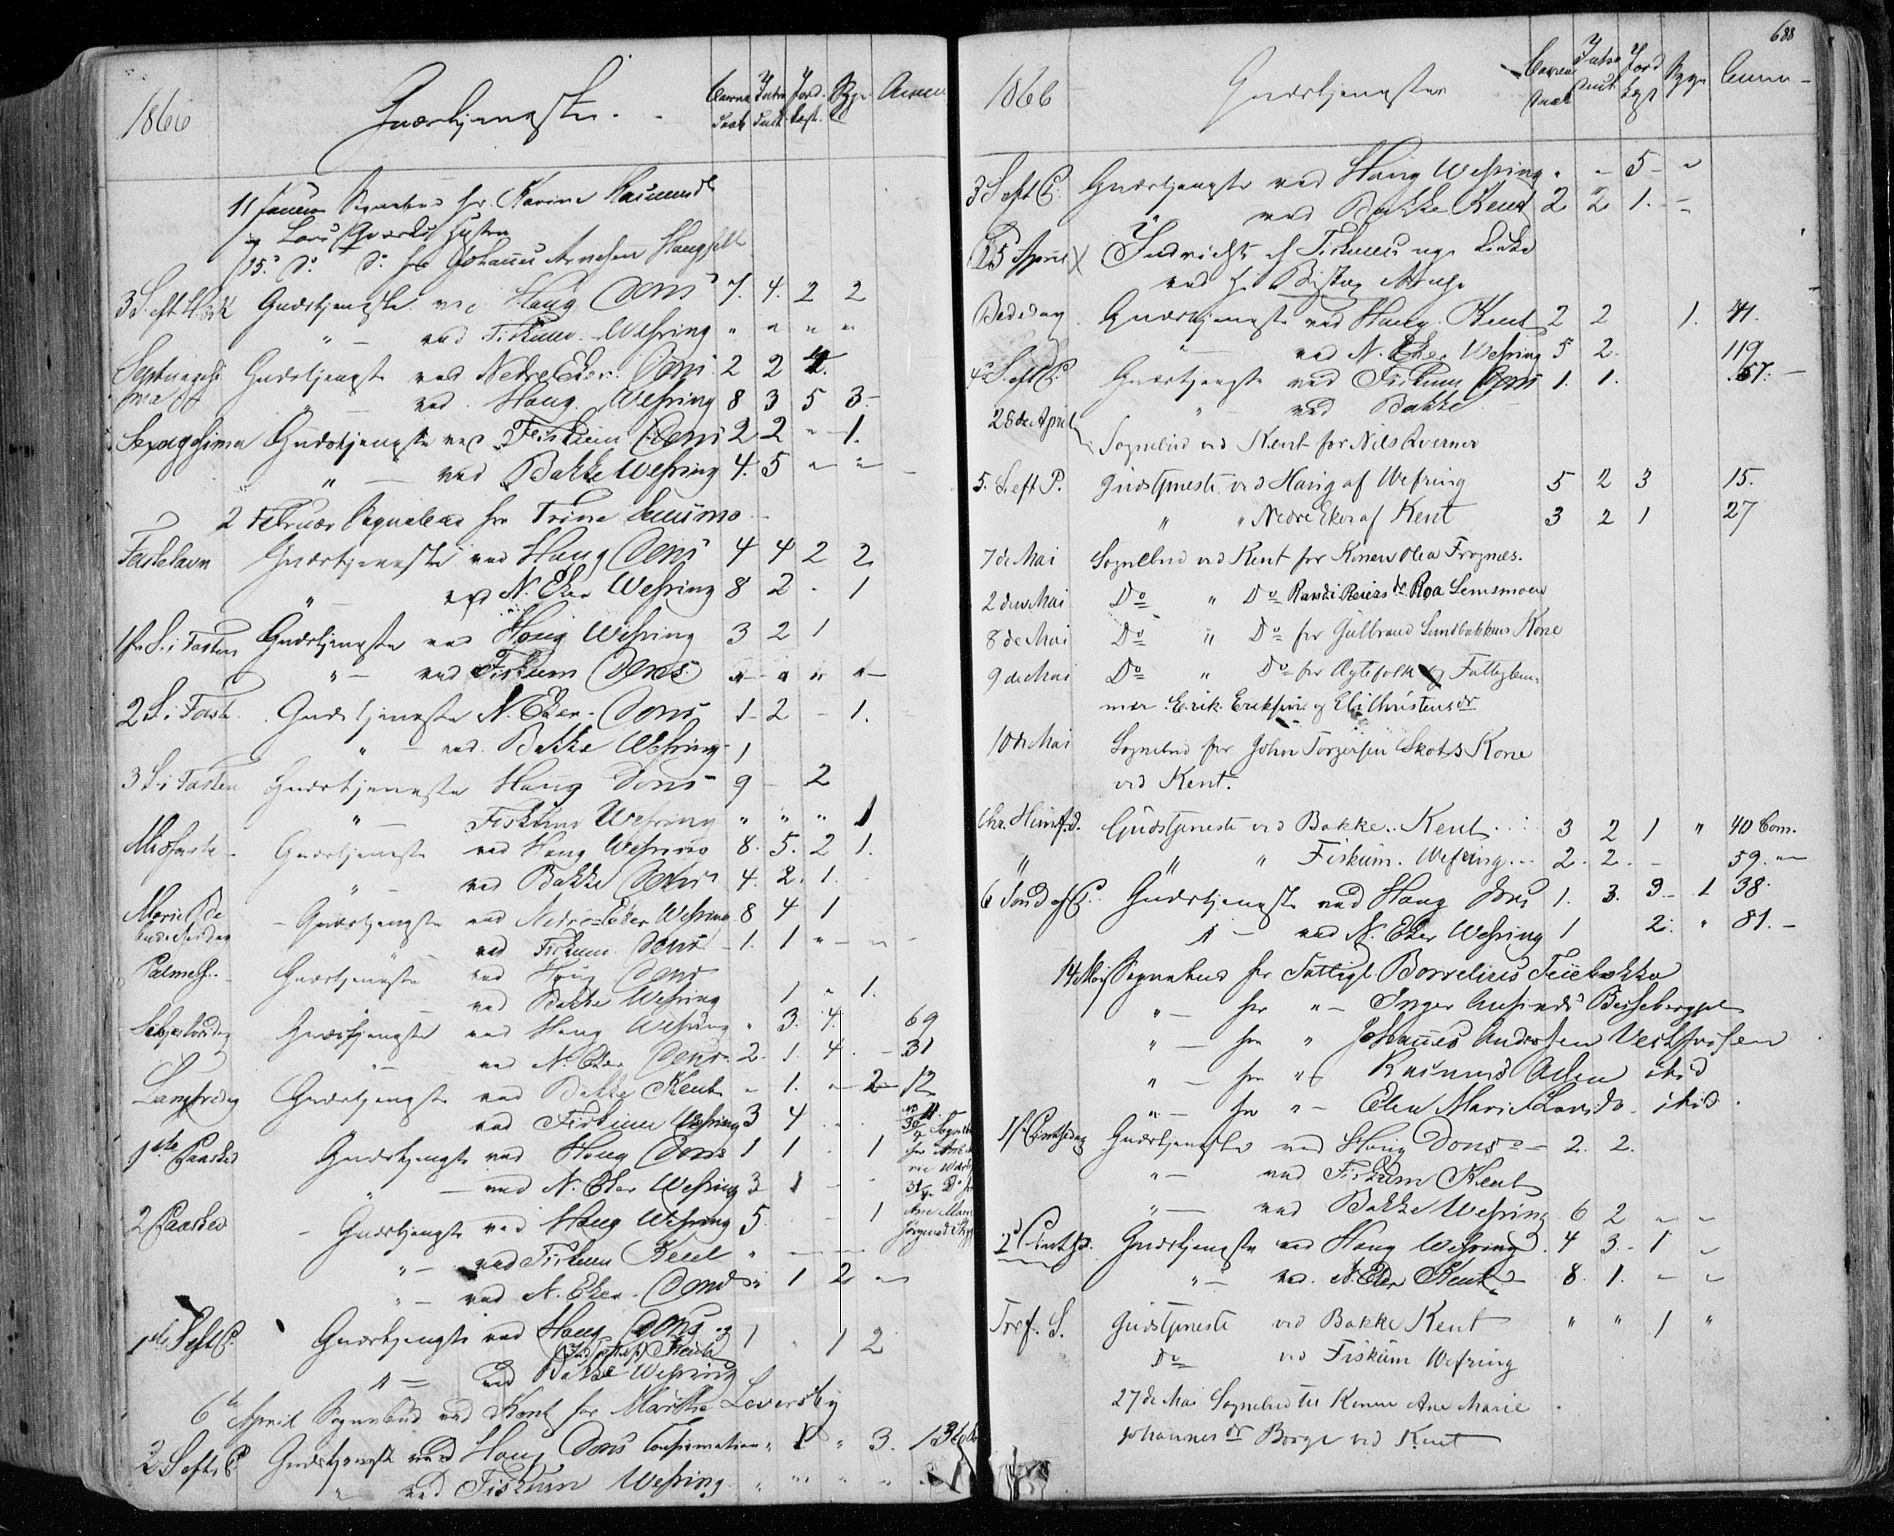 1866
Gudstjeneste
11 Januar Sognebud for Karine Rasmusdr
og Lars Hustru
15 do do for Johannes Arnesen Hougfeldt
Gudstjeneste ved Houg Dons 7. 4. 2 2
" — ved Fiskum Wefring " " " "
Septuagesima Gudstjeneste ved Nedre Eker Dons 2 2 4
" ved Houg Wefring 8 3 5 3
Sexagesima Gudstjeneste ved Fiskum Dons 2 2 - 1.
" — ved Bakke Wefring 4. 5 " "
2 Februar Sognebud for Trine
Fastelavn Gudstjeneste ved Houg Dons 4 4 2 2
" — ved N. Eker Wefring 8 2 - 1
1ste S. i Fasten Gudstjeneste ved Houg Wefring 3 2 1
" — ved Fiskum Dons " " " "
2 S. i Faste Gudstjeneste N. Eker Dons 1 - 2 - 1.
" — ved Bakke Wefring 1
3 S. i Fasten Gudstjeneste Houg Dons 9 - 2
" — Fiskum Wefring " " " 1
Midfaste Gudstjeneste ved Houg Wefring 8. 5. 2 1.
" — ved Bakke Dons 4. 2. 1.
Marie Be
budelsesdag - Gudstjeneste ved Nedre Eker Wefring 8 4 1
" ved Fiskum Dons 1. 1 " - -
Palmes. Gudstjeneste ved Houg Dons
— ved Bakke Wefring 1 " 1.
Skjertorsdag Gudstjeneste ved Houg Wefring " 3. 4. 69
" — ved N. Eker Dons 2. 1. 4. - 31
Langfredag Gudstjeneste ved Bakke Kent - 1. - 2 - 12
ved Fiskum Wefring 3 4
1ste Paaskd Gudstjeneste ved Houg Dons 1 1 . 1
" — ved N. Eker Wefring 3 1 -
2 Paaskd - Gudstjeneste ved Houg Wefring 5. - 1
" — ved Fiskum Kent "
" — ved N. Eker Dons " 1 2 "
1ste S. eft P. Gudstjeneste ved Houg Dons og 1 . 1 2
Kent
" — ved Bakke Wefring
6te April Sognebud ved Kent for Marthe Leversby
2 S. eft. P Gudstjeneste ved Houg Dons Confirmation " " 3. 136
" ved Fiskum Wefring " " " "
688
1866 Gudstjenester
3 S. eft P. Gudstjeneste ved Houg Wefring " - 5 - "
" ved Bakke Kent 2 2 1. -
25 April Indvielse af Fiskums nye Kirke
ved Hr. Biskop Arup
Bededag Gudstjeneste ved Houg Kent 2 2 1. 41.
— ved N. Eker Wefring 5 2. 119
4de S. eft P. Gudstjeneste ved Fiskum Dons 1. 1. 67. —
" — ved Bakke
28 de April
Sognebud ved Kent for Nils Kverner
5. S. eft P. Gudstjeneste ved Houg af Wefring 5 2 3 15.
" " Nedre Eker af Kent 3 2 1 27
7 de Mai Sognebud ved Kent for Konen Olea Frognæs.
2 den Mai Do " Do Randi Reiersdr. Roa Semsmoen
8 de Mai Do " Do for Gulbrand Sandbakkens Kone
9 de Mai Do " Do for Ægtefolk og Fattiglem-
mer Erik Eriksen og Eli Christensdr
10 de Mai Sognebud for John Torgersen Skots Kone
ved Kent.
Chr. Himfd. Gudstjeneste ved Bakke. Kent 3 2 1 " 40 Com.
" " " Fiskum. Wefring 2. 2. - 59. "
6 Sønd ef P. Gudstjeneste ved Houg Dons 1. 3. 3 - 1 38.
" — ved N. Eker Wefring 1 2. " 81. -
14 Mai Sognebud for Fattigl Borrelius Teiebakke
" — for " — Inger
" — for " Johannes Andersen Vestfossen
" — for " — Rasmus Aasen ibid
" — for " — Elen Marie ibid.
1ste Pintsedag Gudstjeneste ved Houg Dons — 2. 2.
" — ved Fiskum Kent
" — ved Bakke Wefring 6 2 " "
2 Pintsd. Gudstjeneste ved Houg Wefring. 4 3. - 1 "
" — ved. N. Eker Kent — 8. 1. - "
Tref. S. Gudstjeneste ved Bakke Kent " " 1 "
Do ved Fiskum Wefring
27 de Mai Sognebud til Konen Ane Marie
Johannesdr Borge ved Kent